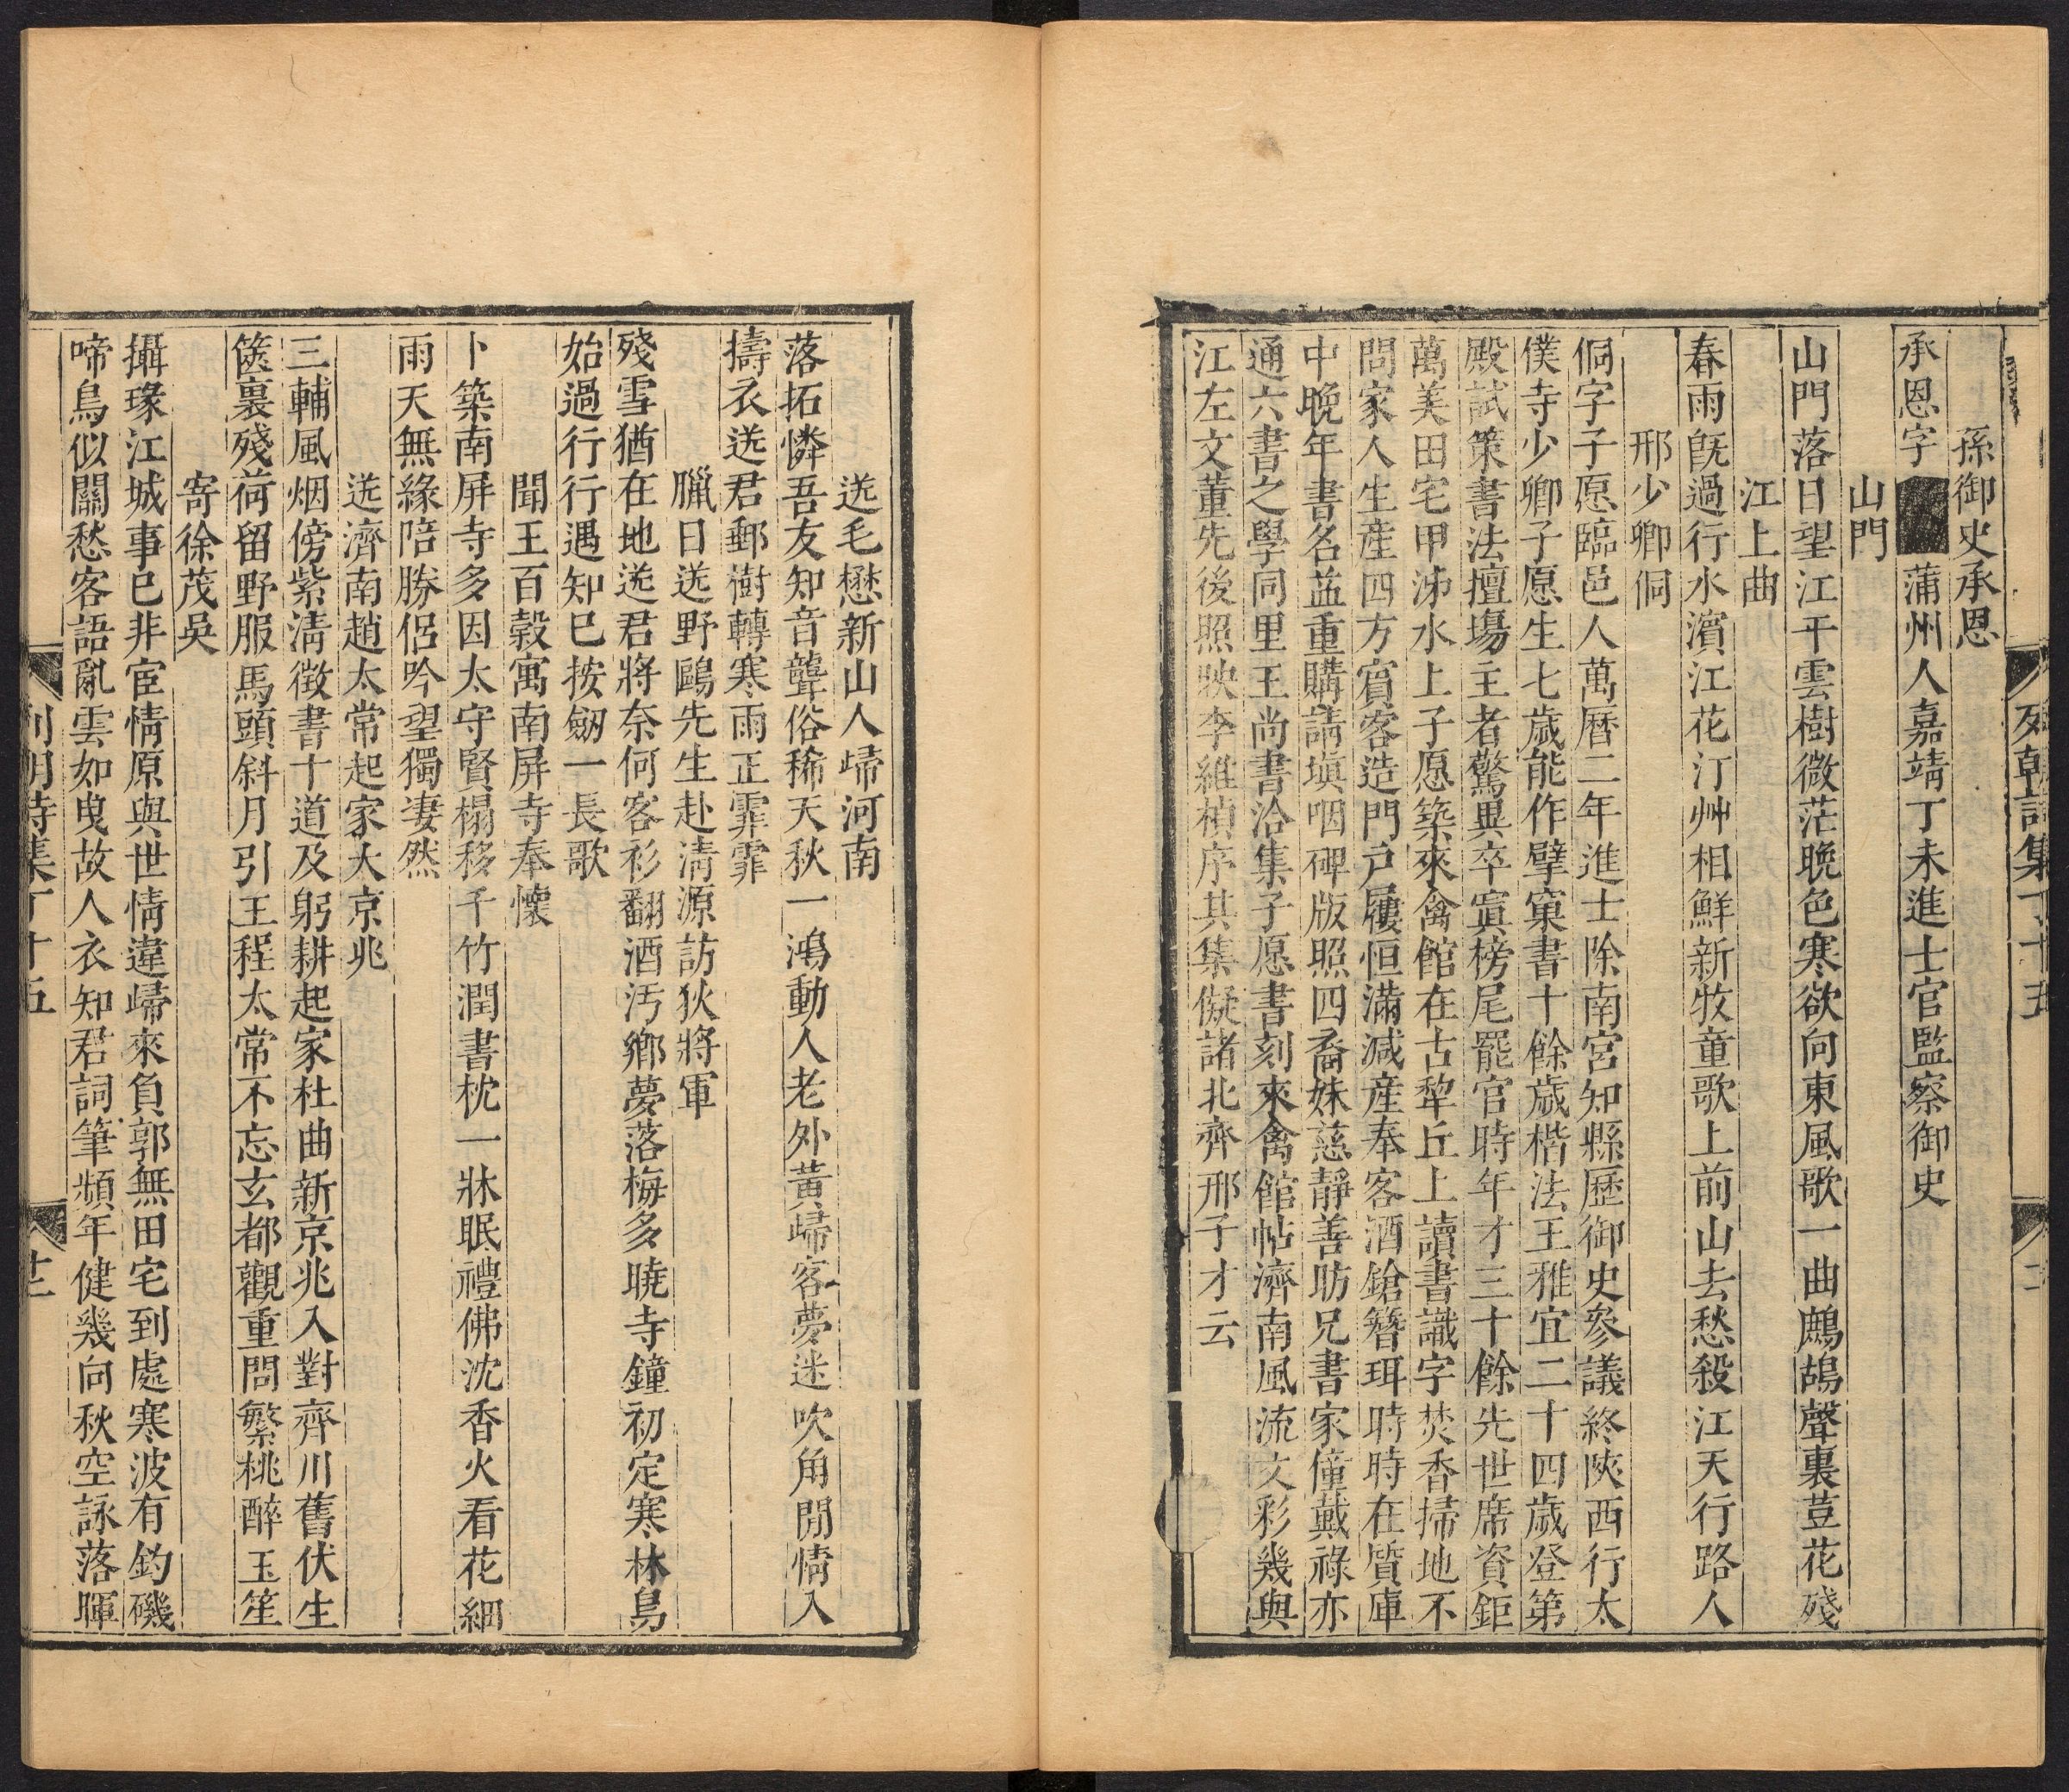 孫御史承恩
承恩字 蒲州人嘉靖丁未進士官監察御史
山門
山門落日望江干雲樹微茫晚色寒欲向東風歌一曲鷓鴣聲裏荳花殘
江上曲
春雨旣過行水濱江花汀艸相鮮新牧童歌上前山去愁殺江天行路人
邢少卿侗
侗字子愿臨邑人萬曆二年進士除南宮知縣歷御史參議終陝西行太
僕寺少卿子愿生七歲能作擘窠書十餘歲楷法王雅宜二十四歲登第
殿試策書法擅塲主者驚異卒寘榜尾罷官時年才三十餘先世席資鉅
萬美田宅甲沛水上子愿築來禽館在古犂丘上讀書識字焚香掃地不
問家人生産四方賓客造門戸屨恒滿減産奉客酒鎗簪珥時時在質庫
中晚年書名益重購請塡咽碑版照四裔妹慈靜善昉兄書家僮戴祿亦
通六書之學同里王尚書洽集子愿書刻來禽館帖濟南風流文彩幾與
江左文董先後照映李維楨序其集儗諸北齊邢子才云
列朝詩集丁十五
送毛懋新山人歸河南
落拓憐吾友知音聾俗稀天秋一鴻動人老外黃歸客夢迷吹角閒情入
擣衣送君郵樹轉寒雨正霏霏
臘日送野鷗先生赴淸源訪狄將軍
殘雪猶在地送君將奈何客衫翻酒汚鄉夢落梅多曉寺鐘初定寒林鳥
始過行行遇知已按劒一長歌
聞王百穀寓南屏寺奉懷
卜築南屏寺多因太守賢榻移千竹潤書枕一牀眠禮佛沈香火看花細
雨天無緣陪勝侶吟望獨凄然
送濟南趙太常起家大京兆
三輔風烟傍紫淸徵書十道及躬耕起家杜曲新京兆入對齊川舊伏生
篋裏殘荷留野服馬頭斜月引王程太常不忘玄都觀重問繁桃醉玉笙
寄徐茂吳
攝瑑江城事已非宦情原與世情違歸來負郭無田宅到處寒波有釣磯
啼鳥似關愁客語亂雲如曳故人衣知君詞筆頻年健幾向秋空詠落暉
列朝詩集丁十五